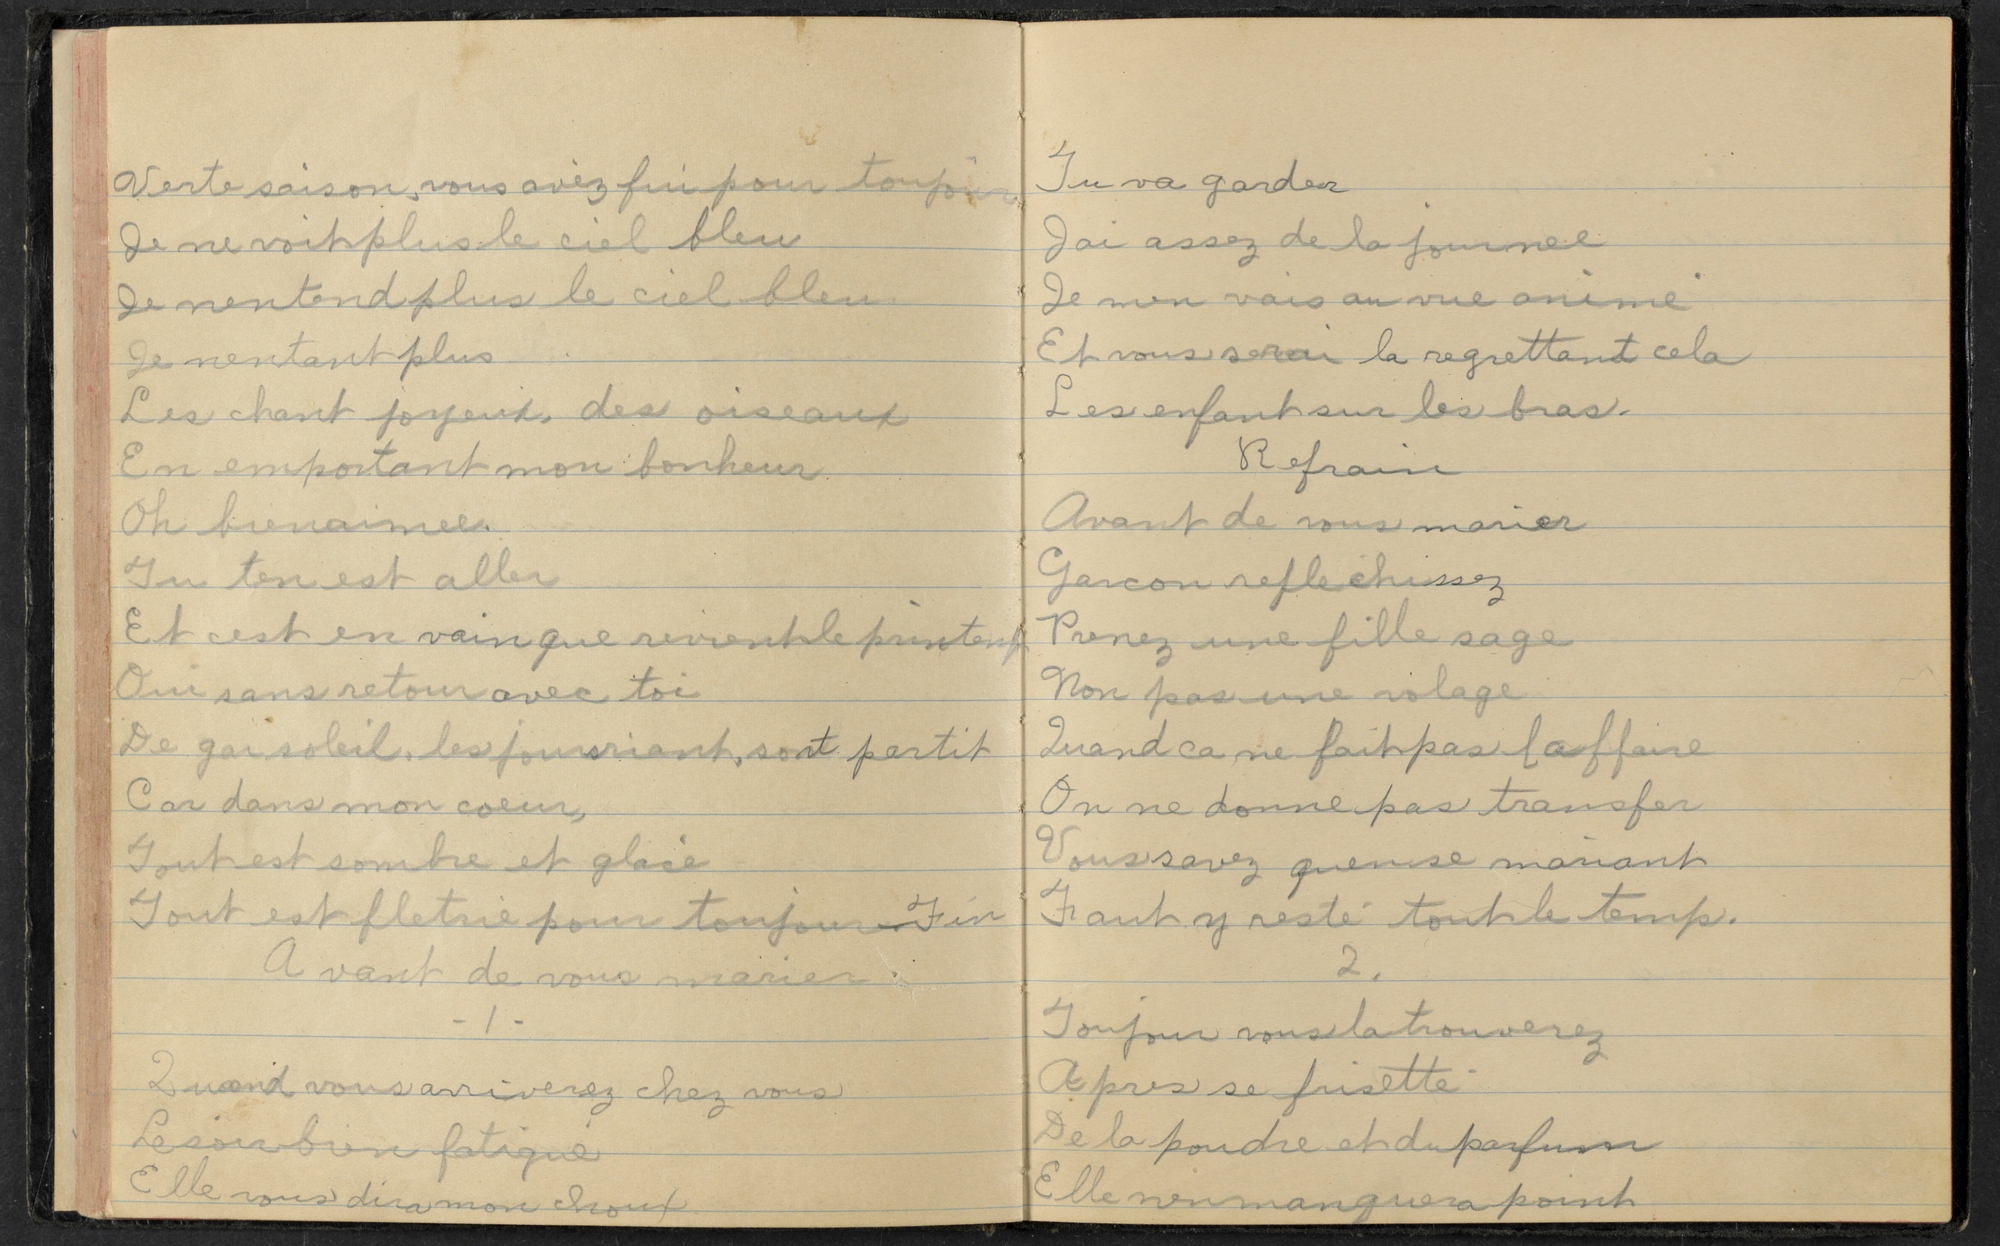 Verte saison, vous avez fui pour toujour
Je ne voit plus le ciel bleu
Je nentend plus le ciel bleu
Je nentant plus
Les chant joyeux, des oiseaux
En emportant mon bonheur
Oh bienaimee.
Tu ten est aller
Et cest en vain que revient le printemp
Oui sans retour avec toi
De gai soleil, les jours riant, sont partit
Car dans mon coeur,
Tout est sombre et glacé
Tout est fletrie pour toujour. Fin
Avant de vous marier
- 1 -
Quand vous arriverez chez vous
Le soir bien fatigué
Elle vous dira mon choux
Tu va garder
Jai assez de la journee
Je men vais au vue animé
Et vous serai la regrettant cela
Les enfant sur les bras.
Refrain
Avant de vous marier
Garcon reflechissez
Prenez une fille sage
Non pas une volage
Quand ca ne fait pas laffaire
On ne donne pas transfer
Vous savez quen se mariant
Faut y resté tout le temp.
2.
Toujour vous la trouverez
Apres se frisetté
De la poudre et du parfum
Elle nen manquera point